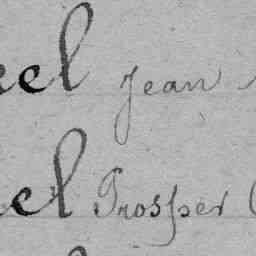 eel Jean
el Prosper